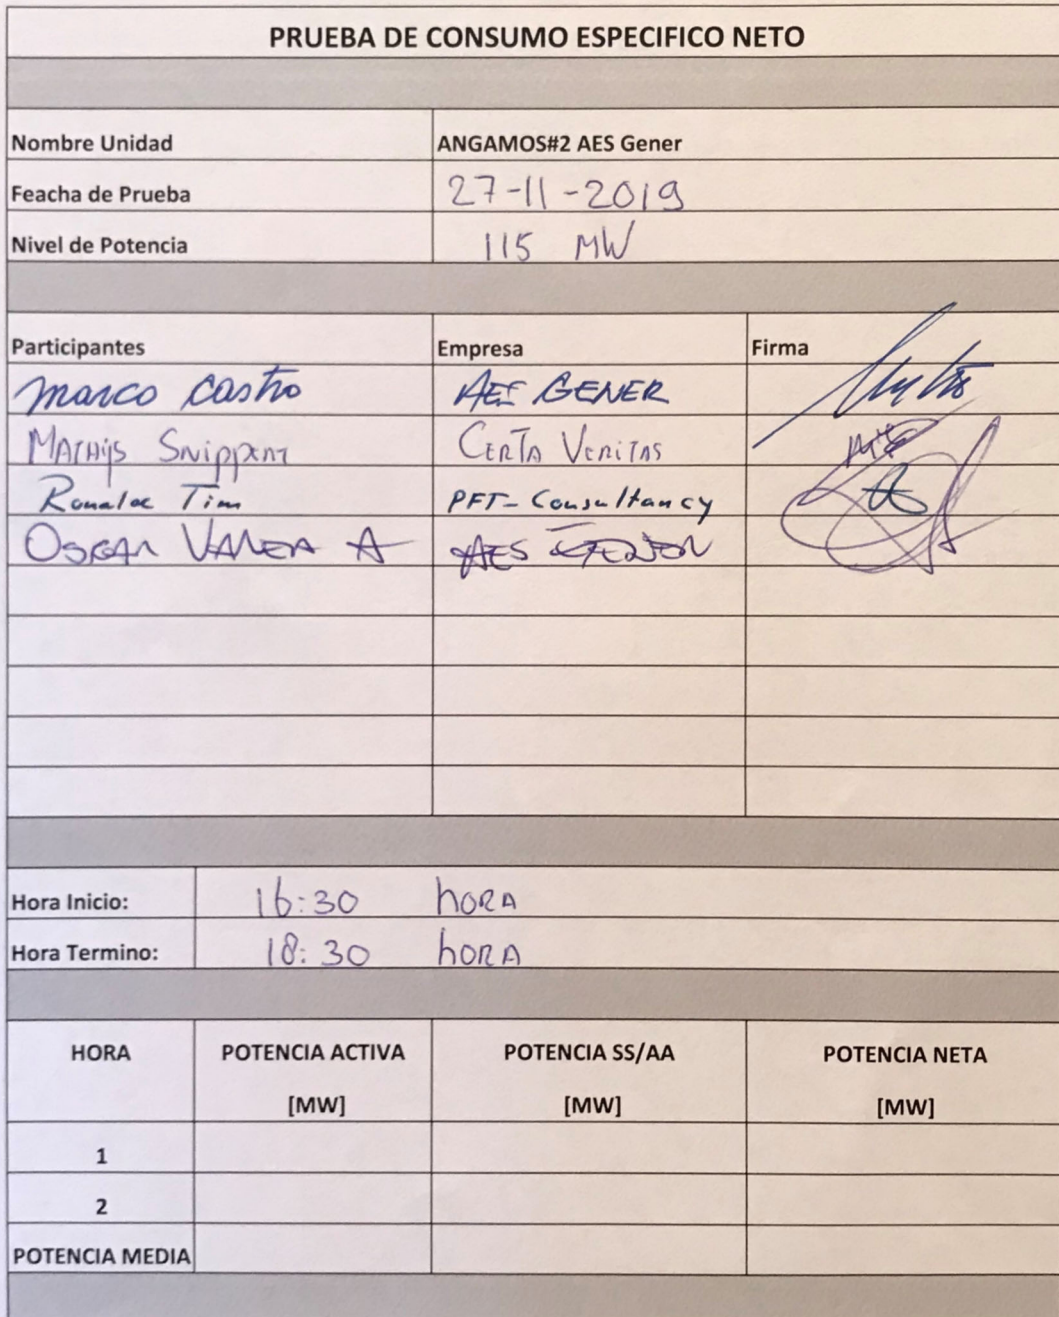 PRUEBA DE CONSUMO ESPECIFICO NETO
Nombre Unidad ANGAMOS#2 AES Gener
Feacha de Prueba 27-11-2019
Nivel de Potencia 115 MW
Participantes Empresa Firma
Marco Castro AES GENER
MATHIJS CERTA VERITAS
Tim PFT-Consultancy
OSCAR A AES GENER
Hora Inicio: 16:30 HORA
Hora Termino: 18:30 HORA
HORA POTENCIA ACTIVA POTENCIA SS/AA POTENCIA NETA
[MW] [MW] [MW]
1
2
POTENCIA MEDIA